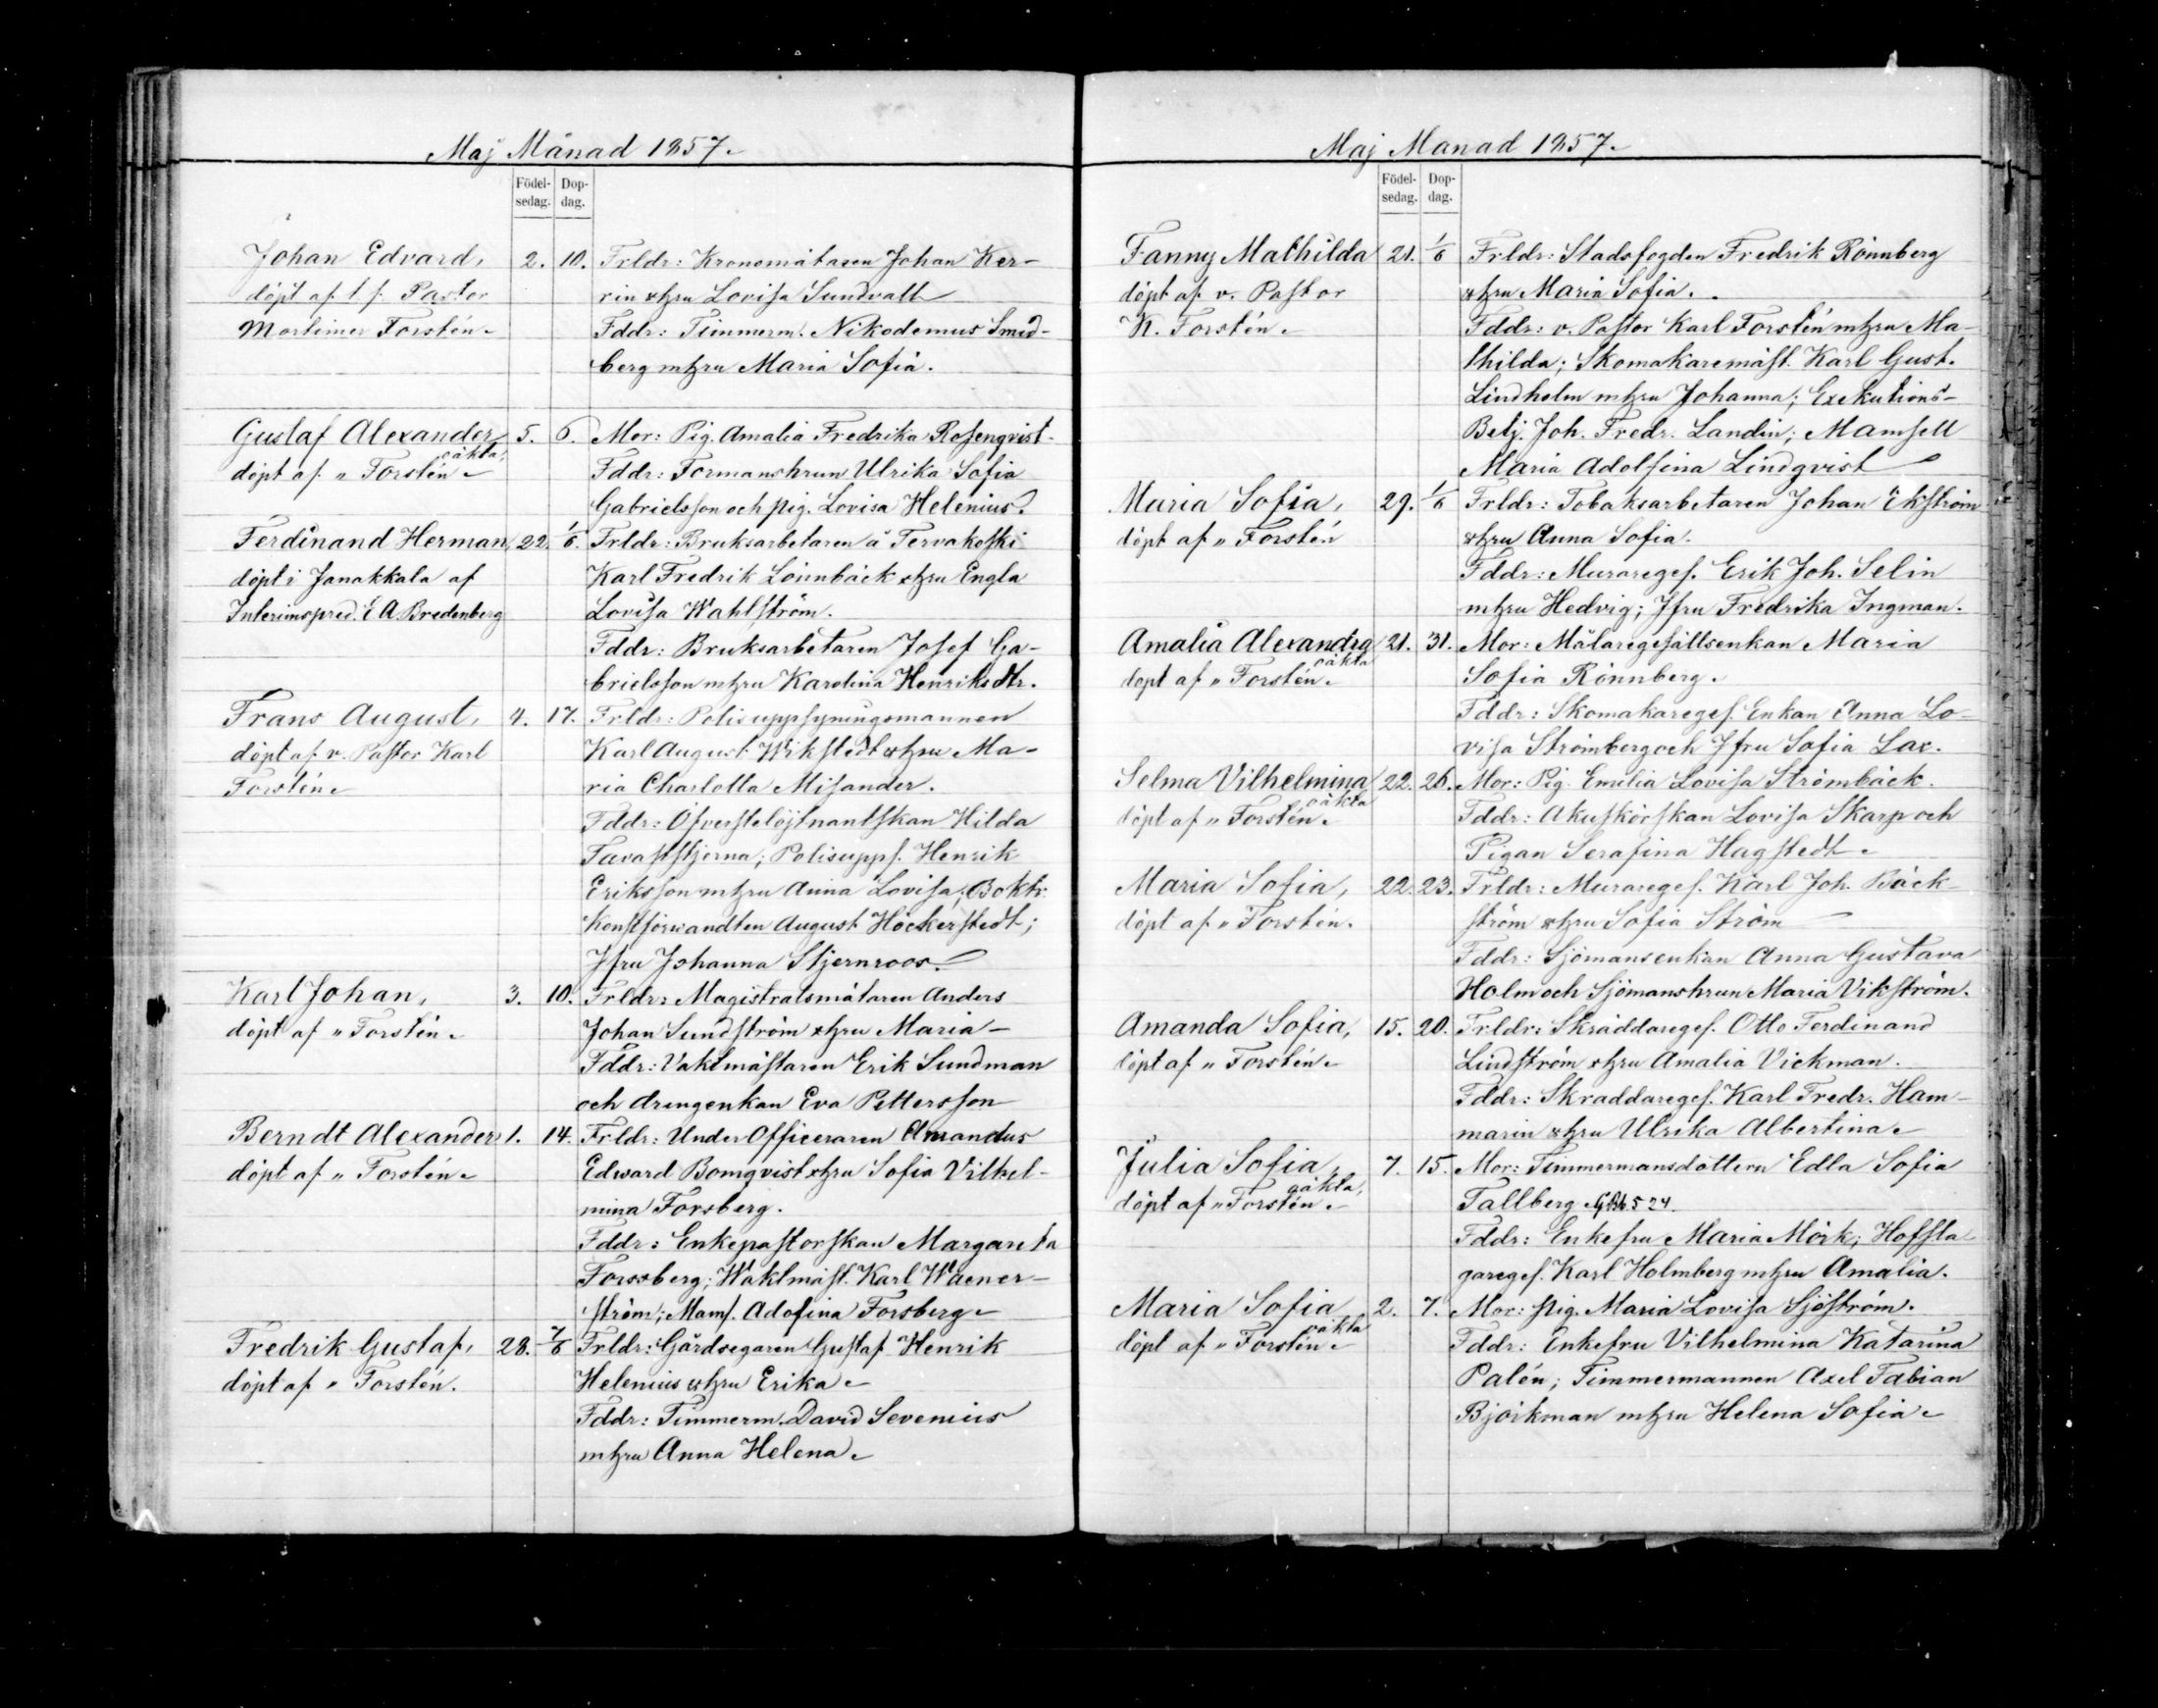 Maj Månad 1857.
Födel-
sedag.
Dop-
dag.
Johan Edvard, 2. 10. Frldr: Kronomätaren Johan Ker-
döpt af t f. Pastor rin o hru Lovisa Sundvall
Mortimer Forstén. Fddr: Timmerm. Nikodemus Smed-
berg m hru Maria Sofia.
Gustaf Alexander 5. 6. Mor: Pig. Amalia Fredrika Rosenqvist.
oäkta,
döpt af " Forstén. Fddr: Formanshrun Ulrika Sofia
Gabrielsson och pig. Lovisa Helenius.
Ferdinand Herman, 22. 1/6. Frldr: Bruksarbetaren å Tervakoski
döpt i Janakkala af Karl Fredrik Lönnbäck o hru Engla
Interimspred. E A. Bredenberg Lovisa Wahlström.
Fddr: Bruksarbetaren Josef Ga-
brielsson m hru Karolina Henriksdtr.
Frans August, 4. 17. Frldr: Polisuppsyningsmannen
döpt af v. Pastor Karl Karl August Wikstedt o hru Ma-
Forstén. ria Charlotta Misander.
Fddr: Öfverstelöjtnantskan Hilda
Tavaststjerna; Polisupps. Henrik
Eriksson m hru Anna Lovisa; Boktr.
konstförvandten August Höckerstedt;
Jfru Johanna Stjernroos.
Karl Johan, 3. 10. Frldr: Magistratsmätaren Anders
döpt af " Forstén. Johan Sundström o hru Maria -
Fddr: Vaktmästaren Erik Sundman
och drengenkan Eva Pettersson
Berndt Alexander 1. 14. Frldr: Under Officeraren Amandus
döpt af " Forstén. Edward Bomqvist o hru Sofia Vilhel-
mina Forsberg.
Fddr: Enkepastorskan Margareta
Forssberg; Waktmäst. Karl Waener-
ström; Mams. Adofina Forsberg.
Fredrik Gustaf, 28. 7/6 Frldr: Gårdsegaren Gustaf Henrik
döpt af " Forstén. Helenius o hru Erika.
Fddr: Timmerm. David Sevenius
m hru Anna Helena.
Maj Manad 1857.
Födel-
sedag.
Dop-
dag.
Fanny Mathilda 21. 1/6 Frldr: Stadsfogden Fredrik Rönnberg
döpt af v. Pastor o hru Maria Sofia.
K. Forstén. Fddr: v. Pastor Karl Forstén m hru Ma-
thilda; Skomakaremäst. Karl Gust.
Lindholm m hru Johanna; Exekutions-
Betj. Joh. Fredr. Landin; Mamsell
Maria Adolfina Lindqvist
Maria Sofia, 29. 1/6 Frldr: Tobaksarbetaren Johan Ekström
döpt af " Forstén o hru Anna Sofia.
Fddr: Murareges. Erik Joh. Selin
m hru Hedvig; Jfru Fredrika Ingman.
Amalia Alexandra 21. 31. Mor: Målaregesällsenkan Maria
oäkta
döpt af " Forstén. Sofia Rönnberg.
Fddr: Skomakareges. Enkan Anna Lo-
visa Strömberg och Jfru Sofia Lax.
Selma Vilhelmina 22. 26. Mor: Pig. Emilia Lovisa Strömbäck.
oäkta
döpt af " Forstén. Fddr: Akuskörskan Lovisa Skarp och
Pigan Serafina Hagstedt.
Maria Sofia, 22. 23. Frldr: Murareges. Karl Joh. Bäck-
döpt af " Forstén. ström o hru Sofia Ström
Fddr: Sjömansenkan Anna Gustava
Holm och Sjömanshrun Maria Vikström.
Amanda Sofia, 15. 20. Frldr: Skräddareges. Otto Ferdinand
döpt af " Forstén. Lindström o hru Amalia Vickman.
Fddr: Skraddareges. Karl Fredr. Ham-
marin o hru Ulrika Albertina.
Julia Sofia, 7. 15. Mor: Timmermansdöttern Edla Sofia
oäkta,
döpt af " Forstén. Tallberg 524.
Fddr: Enkefru Maria Mörk; Hofsla-
gareges. Karl Holmberg m hru Amalia.
Maria Sofia 2. 7. Mor: pig. Maria Lovisa Sjöström.
oäkta
döpt af " Forstén. Fddr: Enkefru Vilhelmina Katarina
Palén; Timmermannen Axel Fabian
Björkman m hru Helena Sofia.